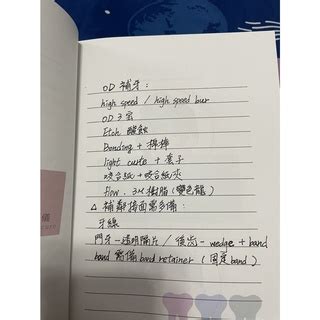 OD 補牙:
high speed / high speed bur
OD 3 寶
Etch 酸蝕
Bonding + 棉棒
light cure + 罩子
咬合紙 + 咬合紙夾
flow、3M 樹脂(變色龍)
△ 補鄰接面需多備:
牙線
門牙 - 透明隔片 / 後齒 - wedge + band
band 需備 band retainer (固定 band)